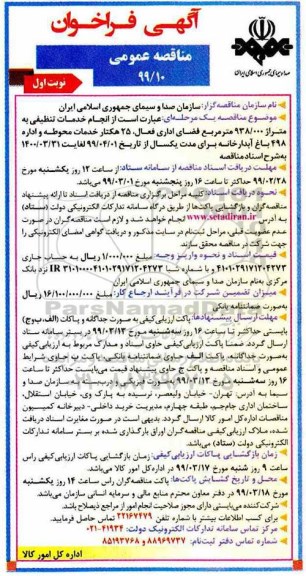 آگهی فراخوان
مناقصه عمومی
۹۹/۱۰
نوبت اول
صدا و سیمای جمهوری اسلامی ایران
نام سازمان مناقصه‌گزار: سازمان صدا و سیمای جمهوری اسلامی ایران
موضوع مناقصه یک مرحله‌ای: عبارت است از انجام خدمات تنظیفی به
متراژ ۹۳۸/۰۰۰ مترمربع فضای اداری فعال، ۲۵ هکتار خدمات محوطه و اداره
۴۹۸ باغ آبدارخانه برای مدت یکسال از تاریخ ۹۹/۰۴/۰۱ لغایت ۱۴۰۰/۰۳/۳۱
به شرح اسناد مناقصه
مهلت دریافت اسناد مناقصه از سامانه ستاد: از ساعت ۱۲ روز یکشنبه مورخ
۹۹/۰۲/۲۸ حداکثر تا ساعت ۱۶ روز پنجشنبه مورخ ۹۹/۰۳/۰۱ می‌باشد.
نحوه دریافت اسناد: کلیه مراحل برگزاری مناقصه از دریافت اسناد تا ارائه پیشنهاد
مناقصه‌گران و بازگشایی پاکت‌ها از طریق درگاه سامانه تدارکات الکترونیکی دولت (ستاد)
به آدرس www.setadiran.ir انجام خواهد شد و لازم است مناقصه‌گران در صورت
عدم عضویت قبلی، مراحل ثبت‌نام در سایت مذکور و دریافت گواهی امضای الکترونیکی را
جهت شرکت در مناقصه محقق سازند.
قیمت اسناد و نحوه واریز وجه: مبلغ ۱/۰۰۰/۰۰۰ ریال به حساب جاری
۴۱۰۱۰۲۹۱۷۱۲۰۴۲۷۳ و با شماره شبا IR نزد بانک
مرکزی به‌نام سازمان صدا و سیمای جمهوری اسلامی ایران
میزان تضمین شرکت در فرآیند ارجاع کار: مبلغ ۱۶/۱۰۰/۰۰۰/۰۰۰ ریال
به‌صورت ضمانتنامه بانکی
مهلت ارسال پیشنهادها: پاکت ارزیابی کیفی به صورت جداگانه و پاکات (الف، ب، ج)
بایستی حداکثر تا ساعت ۱۶ روز سه‌شنبه مورخ ۹۹/۰۳/۱۳ در بستر سامانه ستاد
ارسال گردد. ضمنا پاکت ارزیابی کیفی حاوی اسناد و مدارک مربوط به ارزیابی کیفی
به‌صورت جداگانه، پاکت الف حاوی ضمانتنامه بانکی، پاکت ب حاوی شرایط
عمومی و اسناد مناقصه و پاکت ج حاوی پیشنهاد قیمت می‌بایست حداکثر تا ساعت
۱۶ روز سه‌شنبه مورخ ۹۹/۰۳/۱۳ به سازمان صدا و
سیما به آدرس: تهران- خیابان ولیعصر، نرسیده به پارک وی، خیابان استقلال،
ساختمان اداری جام‌جم، طبقه چهارم، مدیریت خرید داخلی- دبیرخانه کمیسیون
مناقصات اداره کل امور کالا ارسال گردد. بدیهی است در صورت مغایرت اسناد دریافت
شده، ملاک ارزیابی کیفی مناقصه‌گران اوراق بارگذاری شده بر بستر سامانه تدارکات
الکترونیکی دولت (ستاد) می‌باشد.
زمان بازگشایی پاکات ارزیابی کیفی: زمان بازگشایی پاکات ارزیابی کیفی راس
ساعت ۹ روز شنبه مورخ ۹۹/۰۳/۱۷ در اداره کل امور کالا می‌باشد.
محل و تاریخ گشایش پاکت‌ها: پاکت مناقصه‌گران راس ساعت ۱۴ روز یکشنبه
مورخ ۹۹/۰۳/۱۸ در دفتر معاون محترم منابع مالی و سرمایه انسانی سازمان می‌باشد.
شرکت‌کننده می‌بایستی دارای مجوز صلاحیت انجام امور از مراجع ذیصلاح باشد.
برای کسب اطلاعات بیشتر با شماره تلفن ۲۲۱۶۷۴۷۹ تماس حاصل فرمایید.
مرکز تماس سامانه تدارکات الکترونیک دولت: ۰۲۱-۴۱۹۳۴
شماره تماس دفتر ثبت‌نام: ۸۸۹۶۹۷۳۷ و ۸۵۱۹۳۷۶۸
اداره کل امور کالا